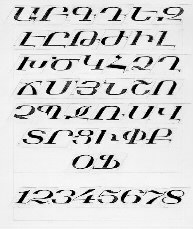 ԱԲԳԴԵԶ
ԷԸԹԺԻԼ
ԽԾԿՀՁՂ
ՃՄՅՆՇՈ
ՉՊՋՌՍՎ
ՏՐՑՒՓՔ
ՕՖ
12345678